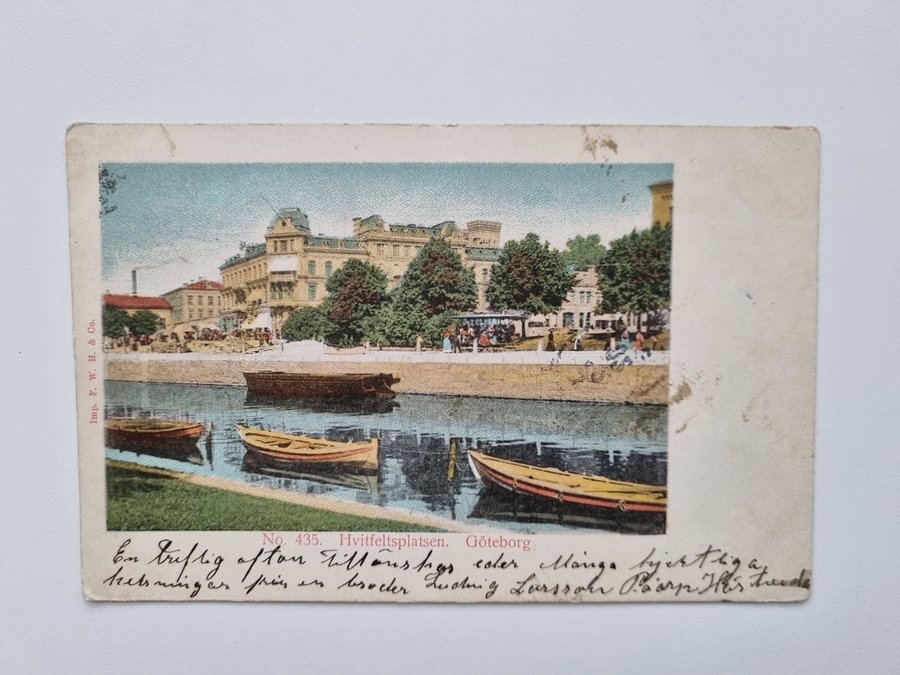 Imp. F. W. H. & Co.
No. 435. Hvitfeltsplatsen. Göteborg
En treflig afton Tillönskas eder Många hjertliga
helsningar från en broder Ludwig Larsson